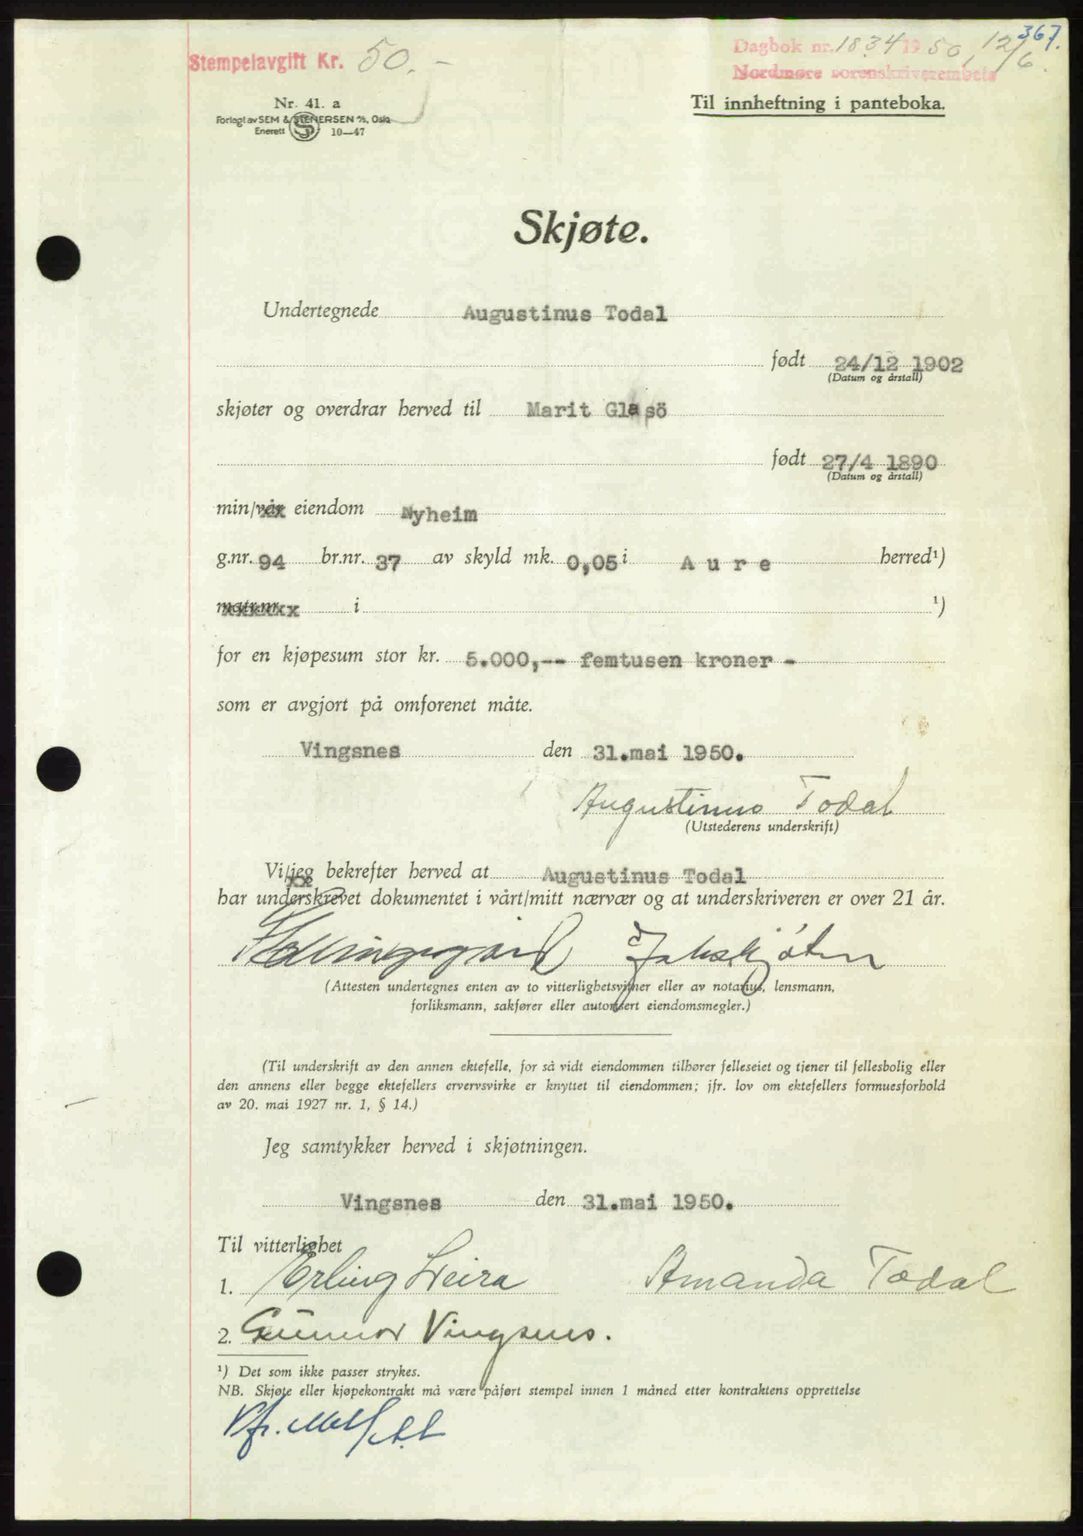 367.
Stempelavgift Kr. 50.-
Dagbok nr. 1834 1950, 12/6.
Nordmøre sorenskriverembete
Nr. 41. a
Til innheftning i panteboka.
Forlagt av SEM & STENERSEN A/S, Oslo
Enerett S 10—47
Skjøte.
Undertegnede Augustinus Todal
født 24/12 1902
(Datum og årstall)
skjøter og overdrar herved til Marit Glasö
født 27/4 1890
(Datum og årstall)
min/vår eiendom Nyheim
g.nr. 94 br.nr. 37 av skyld mk. 0,05 i Aure herred¹)
matr.nr. i ¹)
for en kjøpesum stor kr. 5.000,-- femtusen kroner -
som er avgjort på omforenet måte.
Vingsnes den 31.mai 1950.
Augustinus Todal
(Utstederens underskrift)
Vi/jeg bekrefter herved at Augustinus Todal
har underskrevet dokumentet i vårt/mitt nærvær og at underskriveren er over 21 år.
(Attesten undertegnes enten av to vitterlighetsvitner eller av notarius, lensmann,
forliksmann, sakfører eller autorisert eiendomsmegler.)
(Til underskrift av den annen ektefelle, for så vidt eiendommen tilhører felleseiet og tjener til fellesbolig eller
den annens eller begge ektefellers ervervsvirke er knyttet til eiendommen; jfr. lov om ektefellers formuesforhold
av 20. mai 1927 nr. 1, § 14.)
Jeg samtykker herved i skjøtningen.
Vingsnes den 31.mai 1950.
Til vitterlighet
1. Erling Leira Amanda Todal
2. Gunnor Vingsnes.
¹) Det som ikke passer strykes.
NB. Skjøte eller kjøpekontrakt må være påført stempel innen 1 måned etter kontraktens opprettelse